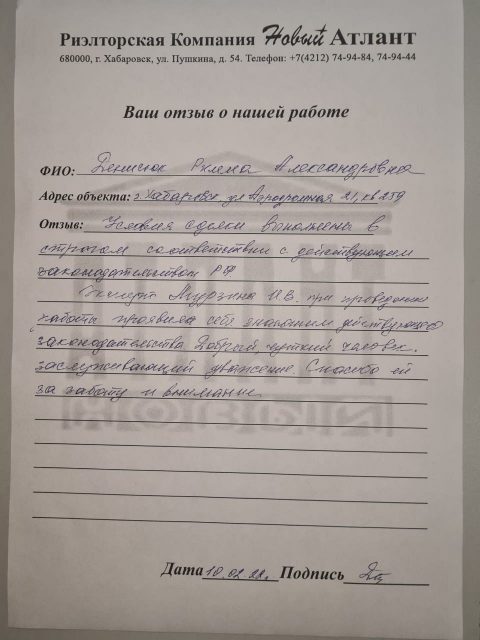 Риэлторская Компания Новый Атлант
680000, г. Хабаровск, ул. Пушкина, д. 54. Телефон: +7(4212) 74-94-84, 74-94-44
Ваш отзыв о нашей работе
ФИО: Денисюк Римма Александровна
Адрес объекта: г. Хабаровск, ул Аэродромная 21, кв 259
Отзыв: Условия сделки выполнены в
строгом соответствии с действующим
законодательством РФ
Эксперт Мурзина И.В. при проведении
работы проявила себя знающим действующее
законодательства. Добрый, чуткий человек.
заслуживающий уважение. Спасибо ей
за заботу и внимание.
Дата 10.02.22г. Подпись